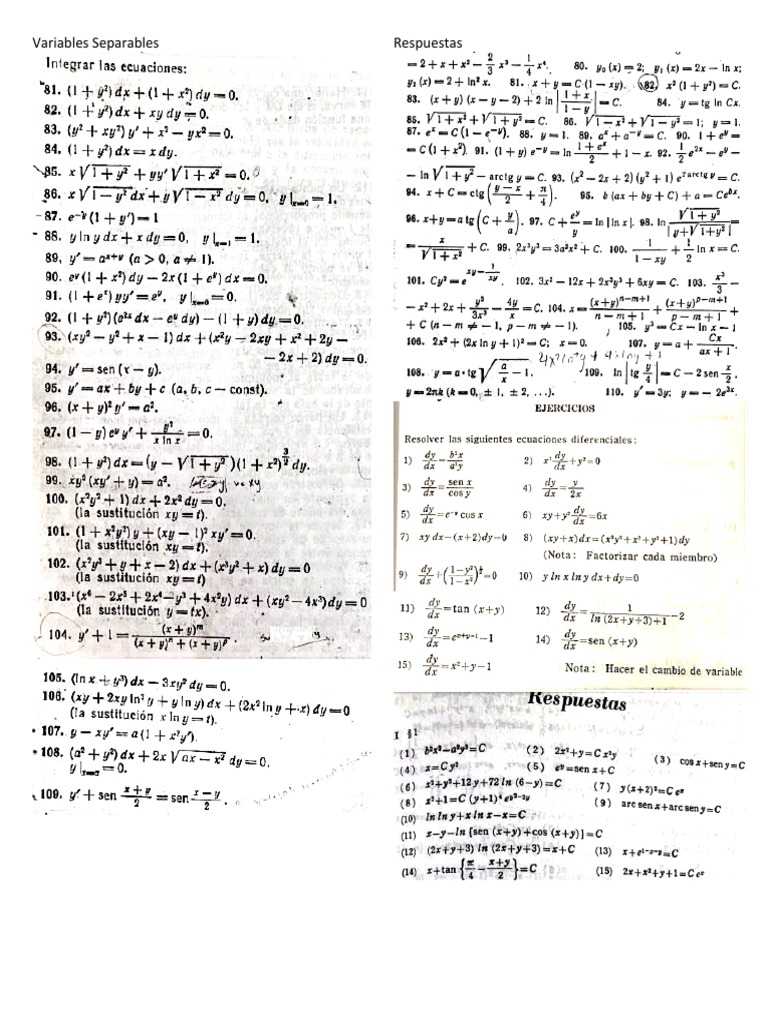 Variables Separables
Integrar las ecuaciones:
81. (1 + y²) dx + (1 + x²) dy = 0.
82. (1 + y²) dx + xy dy = 0.
83. (y² + xy²) y' + x² − yx² = 0.
84. (1 + y²) dx = x dy.
85. x √(1 + y²) + yy' √(1 + x²) = 0.
86. x √(1 − y²) dx + y √(1 − x²) dy = 0, y|ₓ₌₀ = 1.
87. e⁻ʸ (1 + y') = 1
88. y ln y dx + x dy = 0, y|ₓ₌₁ = 1.
89. y' = aˣ⁺ʸ (a > 0, a ≠ 1).
90. eʸ (1 + x²) dy − 2x (1 + eʸ) dx = 0.
91. (1 + eˣ) yy' = eʸ, y|ₓ₌₀ = 0.
92. (1 + y²) (e²ˣ dx − eʸ dy) − (1 + y) dy = 0.
93. (xy² − y² + x − 1) dx + (x²y − 2xy + x² + 2y −
− 2x + 2) dy = 0.
94. y' = sen (x − y).
95. y' = ax + by + c (a, b, c — const).
96. (x + y)² y' = a².
97. (1 − y) eʸ y' + y²/(x ln x) = 0.
98. (1 + y²) dx = (y − √(1 + y²)) (1 + x²)^(3/2) dy.
99. xy² (xy' + y) = a².
100. (x²y² + 1) dx + 2x² dy = 0,
(la sustitución xy = t).
101. (1 + x²y²) y + (xy − 1)² xy' = 0.
(la sustitución xy = t).
102. (x²y³ + y + x − 2) dx + (x³y² + x) dy = 0
(la sustitución xy = t)
103. (x⁶ − 2x⁵ + 2x⁴ − y³ + 4x²y) dx + (xy² − 4x³) dy = 0
(la sustitución y = tx).
104. y' + 1 = (x + y)ᵐ/((x + y)ⁿ + (x + y)ᵖ)
105. (ln x + y³) dx − 3xy² dy = 0.
106. (xy + 2xy ln² y + y ln y) dx + (2x² ln y + x) dy = 0
(la sustitución x ln y = t).
107. y − xy' = a (1 + x²y').
108. (a² + y²) dx + 2x √(ax − x²) dy = 0,
109. y' + sen (x + y)/2 = sen (x − y)/2.
Respuestas
= 2 + x + x² − 2/3 x³ − 1/4 x⁴. 80. y₀ (x) = 2; y₁ (x) = 2x − ln x;
y₂ (x) = 2 + ln² x. 81. x + y = C (1 − xy). 82. x² (1 + y²) = C.
83. (x + y) (x − y − 2) + 2 ln |(1 + x)/(1 − y)| = C. 84. y = tg ln Cx.
85. √(1 + x²) + √(1 + y²) = C. 86. √(1 − x²) + √(1 − y²) = 1; y = 1.
87. eˣ = C (1 − e⁻ʸ). 88. y = 1. 89. aˣ + a⁻ʸ = C. 90. 1 + eʸ =
= C (1 + x²). 91. (1 + y) e⁻ʸ = ln (1 + eˣ)/2 + 1 − x. 92. 1/2 e²ˣ − eʸ −
− ln √(1 + y²) − arctg y = C. 93. (x² − 2x + 2) (y² + 1) e^(2 arctg y) = C.
94. x + C = ctg ((y − x)/2 + π/4). 95. b (ax + by + C) + a = Ceᵇˣ.
96. x + y = a tg (C + y/a). 97. C + eʸ/y = ln |ln x|. 98. ln √(1 + y²)/|y + √(1 + y²)| =
= x/√(1 + x²) + C. 99. 2x³y³ = 3a²x² + C. 100. 1/(1 − xy) + 1/2 ln x = C.
101. Cy² = e^(xy − 1/xy) 102. 3x² − 12x + 2x³y³ + 6xy = C. 103. x³/3 −
− x² + 2x + y³/3x³ − 4y/x = C. 104. x = (x + y)ⁿ⁻ᵐ⁺¹/(n − m + 1) + (x + y)ᵖ⁻ᵐ⁺¹/(p − m + 1) +
+ C (n − m ≠ − 1, p − m ≠ − 1). 105. y³ = Cx − ln x − 1
106. 2x² + (2x ln y + 1)² = C; x = 0. 107. y = a + Cx/(ax + 1).
108. y = a · tg √(a/x − 1). 109. ln |tg y/4| = C − 2 sen x/2,
y = 2πk (k = 0, ± 1, ± 2, ...). 110. y' = 3y; y = − 2e³ˣ.
EJERCICIOS
Resolver las siguientes ecuaciones diferenciales:
1) dy/dx = b²x/a²y 2) x³ dy/dx + y³ = 0
3) dy/dx = sen x/cos y 4) dy/dx = y/2x
5) dy/dx = e⁻ʸ cos x 6) xy + y² dy/dx = 6x
7) xy dx − (x+2)dy = 0 8) (xy+x)dx = (x²y²+x²+y²+1)dy
(Nota: Factorizar cada miembro)
9) dy/dx + ((1−y²)/(1−x²))^(1/2) = 0 10) y ln x ln y dx + dy = 0
11) dy/dx = tan (x+y) 12) dy/dx = 1/(ln (2x+y+3)+1) − 2
13) dy/dx = eˣ⁺ʸ⁻¹ − 1 14) dy/dx = sen (x+y)
15) dy/dx = x² + y − 1 Nota: Hacer el cambio de variable
Respuestas
I §1
(1) b²x² − a²y² = C (2) 2x² + y = C x²y (3) cos x + sen y = C
(4) x = C y² (5) eʸ = sen x + C
(6) x² + y² + 12y + 72 ln (6−y) = C (7) y(x+2)² = C eˣ
(8) x² + 1 = C (y+1)⁴ e^(y²−2y) (9) arc sen x + arc sen y = C
(10) ln ln y + x ln x − x = C
(11) x − y − ln [sen (x+y) + cos (x+y)] = C
(12) (2x+y+3) ln (2x+y+3) = x + C (13) x + e¹⁻ˣ⁻ʸ = C
(14) x + tan {π/4 − (x+y)/2} = C (15) 2x + x² + y + 1 = C eˣ